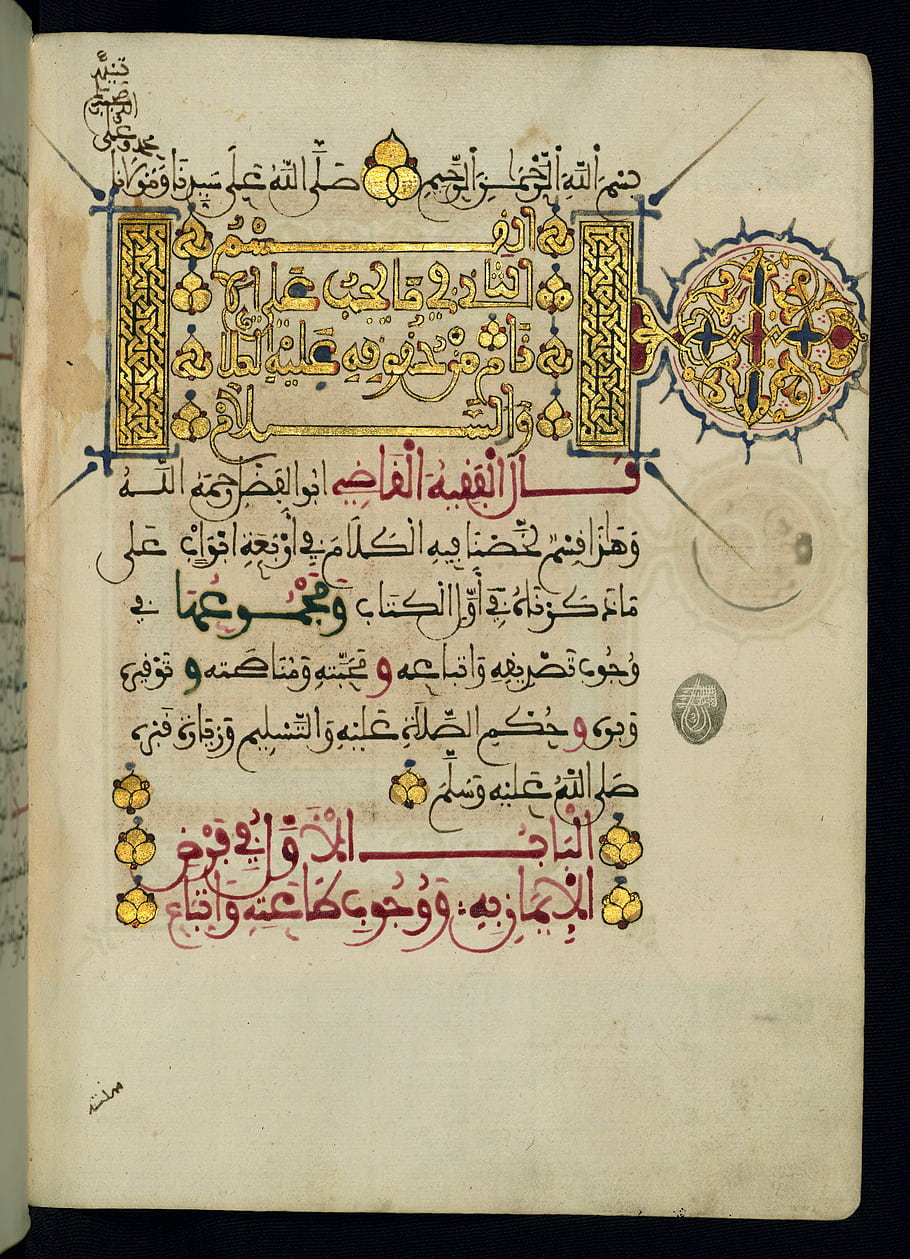 بسم الله الرحمن الرحيم صلى الله على سيدنا ومولانا
نبيه
محمد وعلى
القسم
الثاني في ما يجب على الا
نام من حقوقه عليه الصلا
والسلام
قال الفقيه القاضي ابو الفضل رحمه الله
وهذا قسم لخصنا فيه الكلام في أربعة ابواب على
ما ذكرناه في أول الكتاب ومجموعها في
وجوب تصديقه واتباعه و محبته ومناصحته و توقيره
وبره و حكم الصلاة عليه والتسليم وزيارة قبره
صلى الله عليه وسلم
الباب الأول في فرض
الإيمان به ووجوب طاعته واتباع
سنته